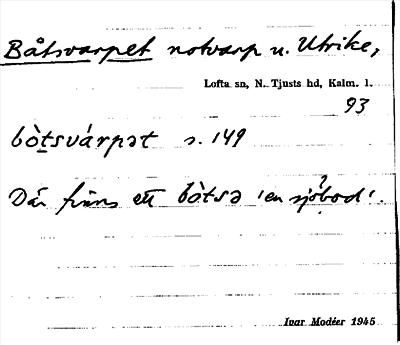 Båtsvarpet notvarp u. Utrike,
Lofta sn, N. Tjusts hd, Kalm. l.
93
bò̱tsvárpət s. 149
Där finns ett bòtsə 'en sjöbod'.
?
Ivar Modéer 1945